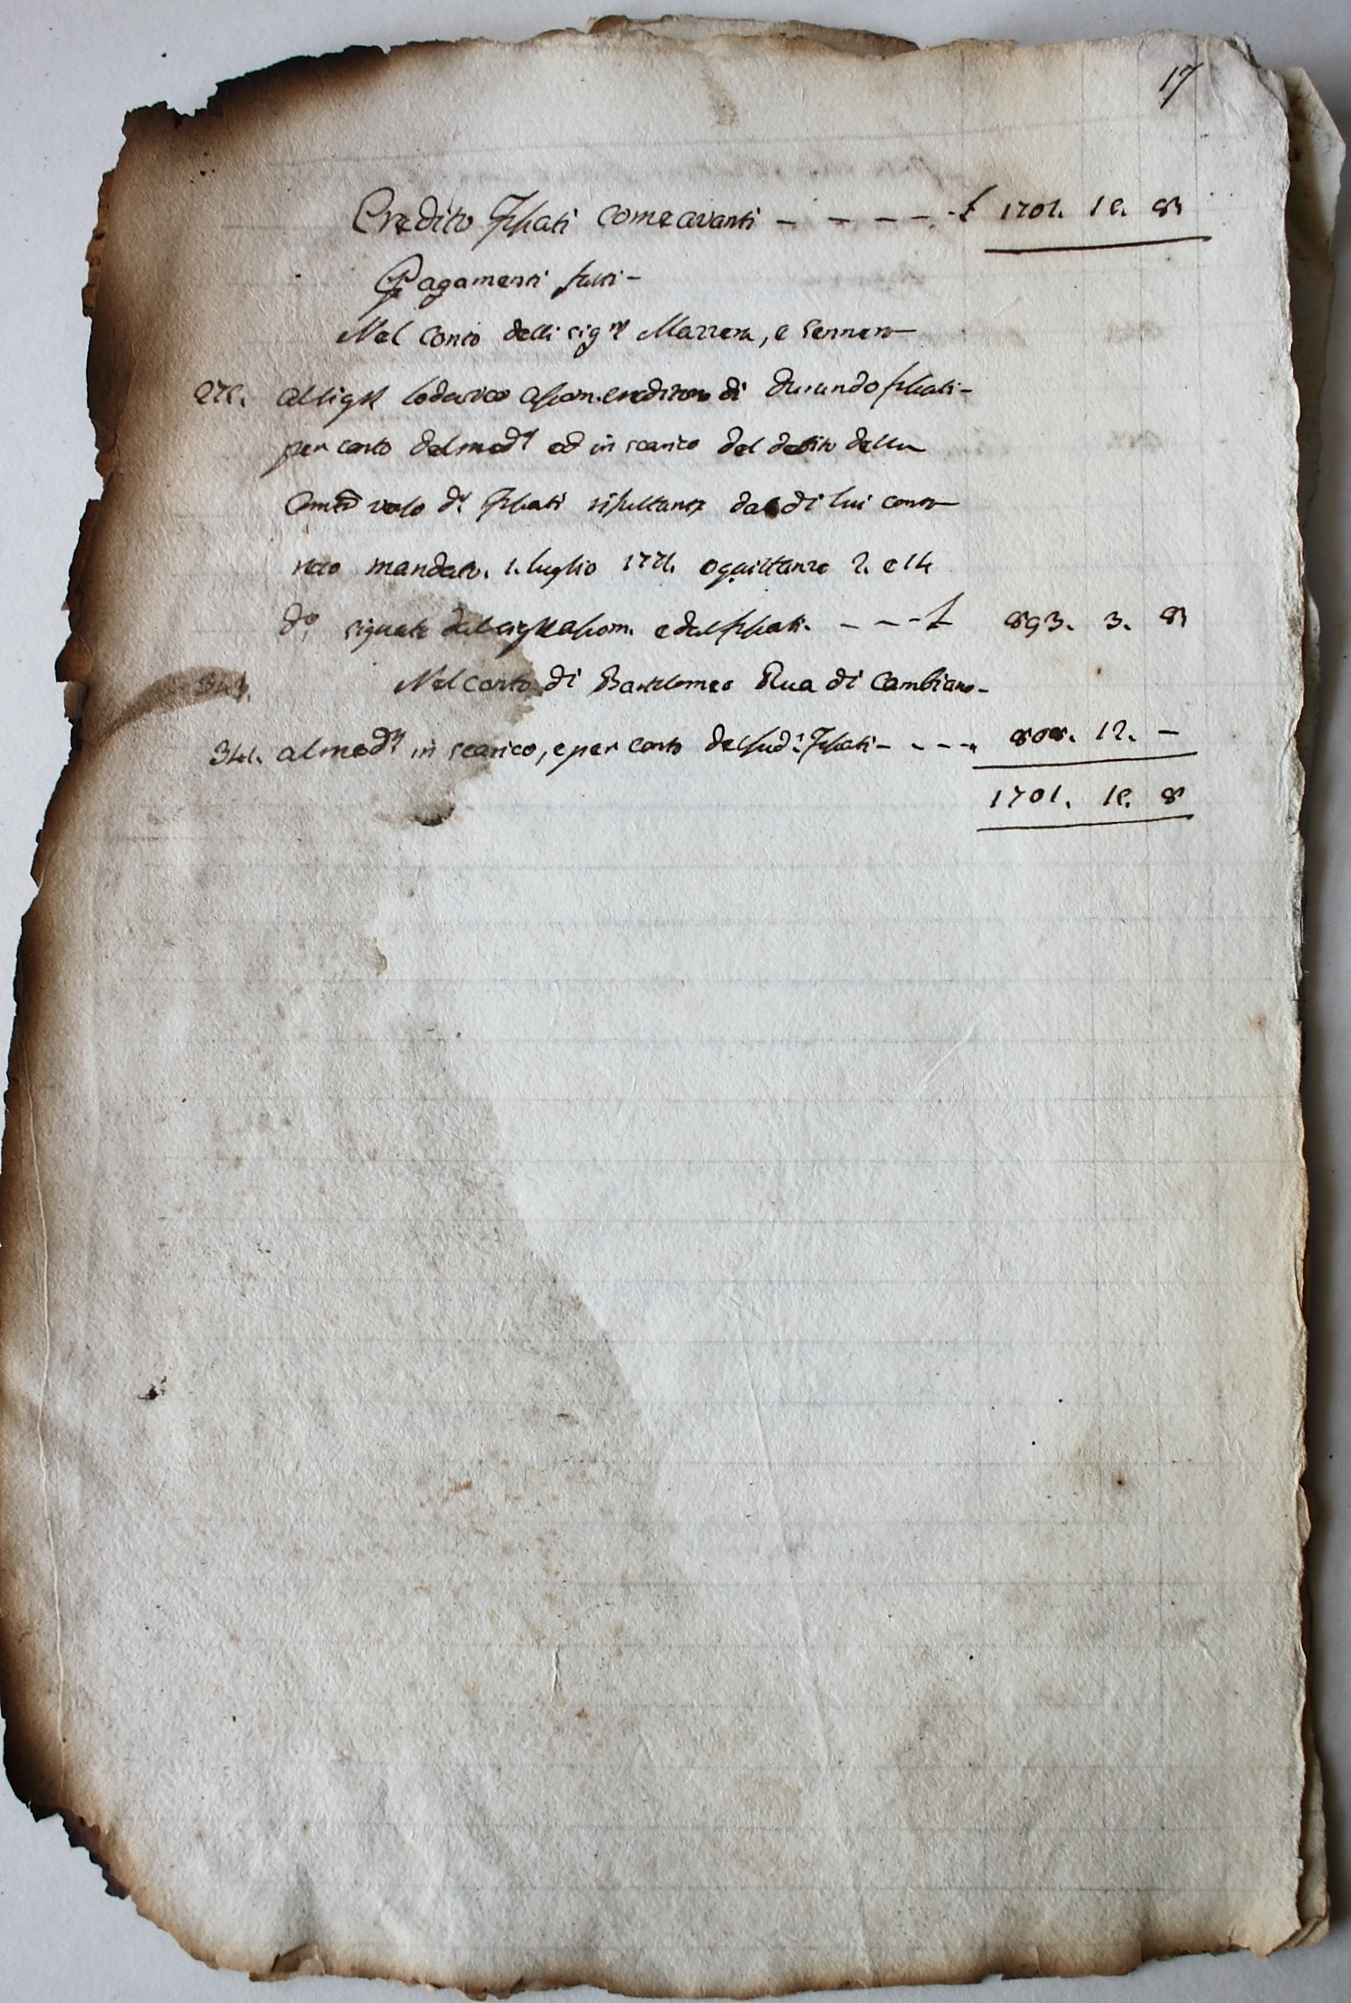 17
Credito Filiati come avanti - - - - - £ 1701. 15. 8
Pagamenti fatti -
Nel conto delli sig.ri Marrera, e
275. al sig.r Lodovico creditore di Durando Filiati -
per conto del med.o ed in scarico del debito della
verso d.o Filiati risultante dal di lui conto
mandato. 1. luglio 1771. e quittanze 2. e 14
d.o signate dal sig.r e dal Filiati. - - - £ 893. 3. 8
341. Nel conto di Bartolomeo Rua di Cambiano -
341. al med.o in scarico, e per conto del sud.o Filiati - - - - 808. 12. -
1701. 15. 8